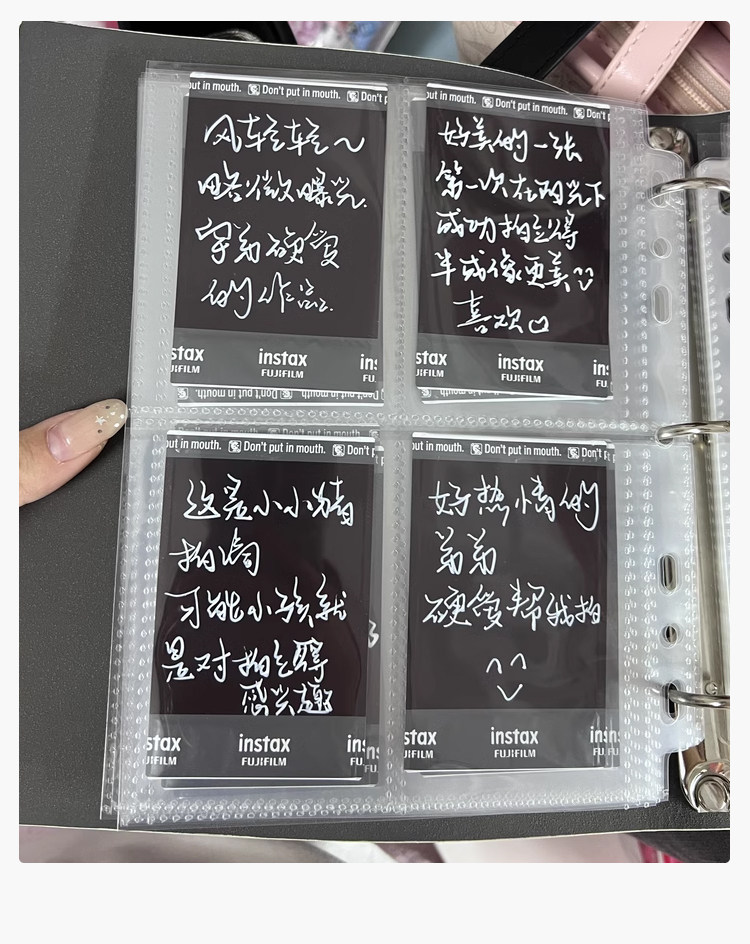 put in mouth. Don't put in mouth. Don't p
风轻轻～
略微曝光.
字弟硬要
的作品.
stax instax ins
UJIFILM FUJIFILM FU
Don't put in mouth. Don't put in mouth.
put in mouth. Don't put in mouth. Don't p
好美的一张
第一次在阳光下
成功拍立得
半成像更美
喜欢
stax instax ins
UJIFILM FUJIFILM FU
ut in mouth. Don't put in mouth. Don't p
这是小小猪
拍滴
可能小孩就
是对拍立得
感兴趣
stax instax ins
UJIFILM FUJIFILM FU
put in mouth. Don't put in mouth. Don't p
好热情的
弟弟
硬要帮我拍
stax instax ins
UJIFILM FUJIFILM FU